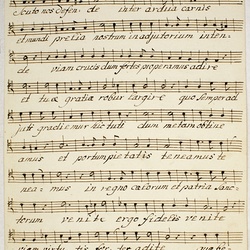 Scuto nos defen: de inter ardua carnis
et mundi prelia nostrum in adjutorium inten:
de viam crucis dum fortes properamus adire
et tu gratia robur largire quo semper ad
juti gradiemur nec tuti dum metam obtine
amus et portum pietatis teneamus te
nea: mus in regno caelorum et patria Sanc:
torum venite ergo fideles venite
viam virtu tis for: ter adite